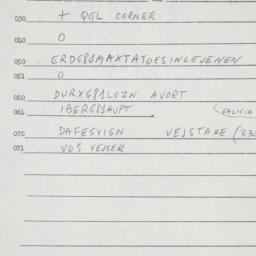 030 + QGL CORNER
040 O
050 ERDGPSMAXTATOESINLEJENEN
051 O
060 DURXGPSLOZN AVORT
061 IBERGPSHUPT (GALICIA
070 DAFESVISN VEJSTAKE (330
071 VDS VEJSER